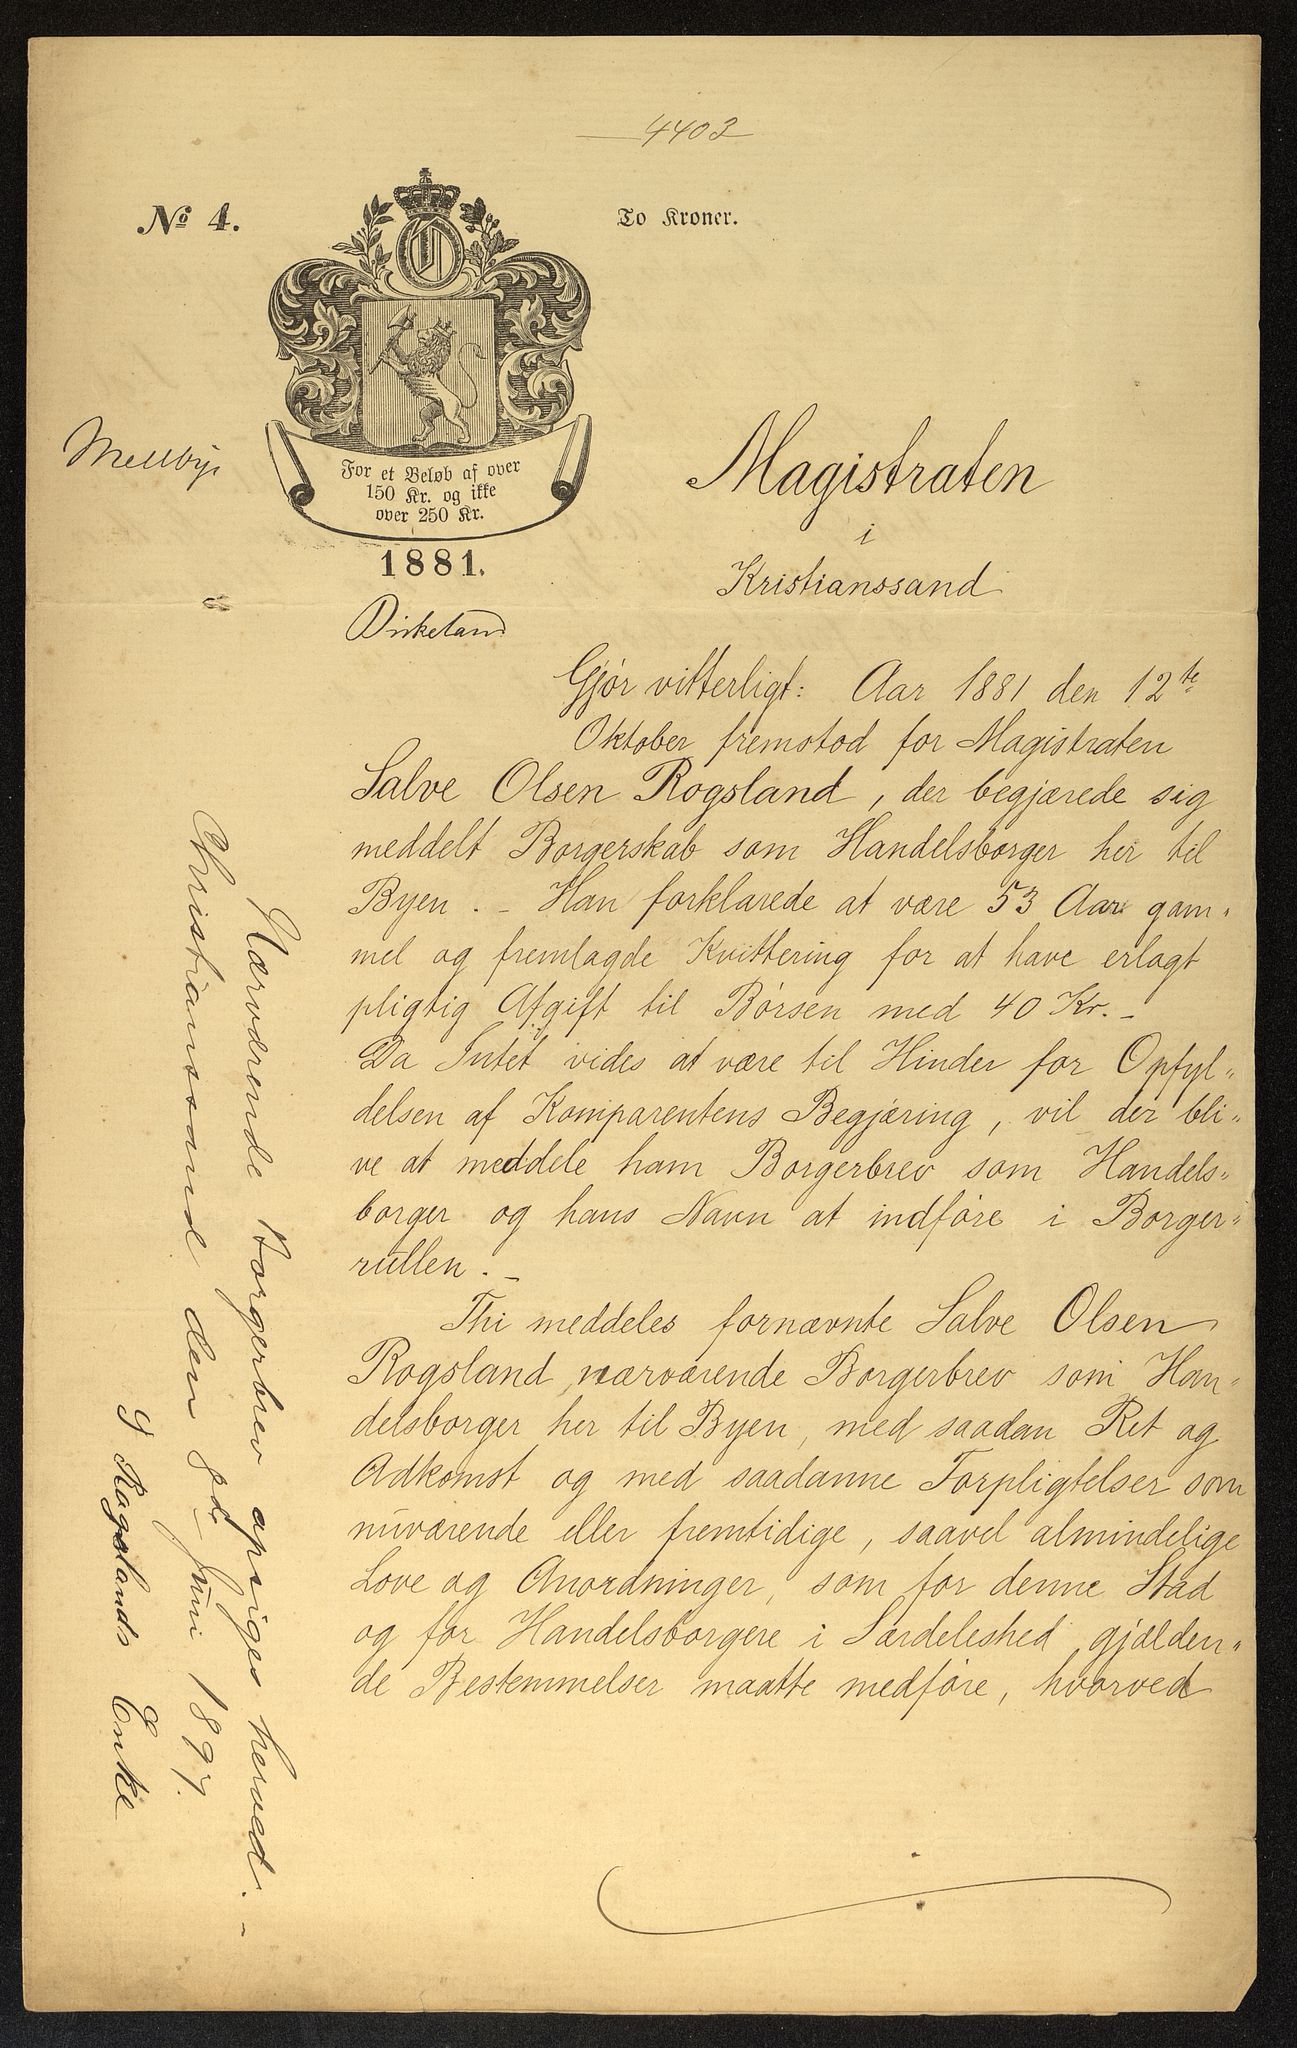 4403
No 4.
To Kroner.
For et Beløb af over
150 Kr. og ikke
over 250 Kr.
1881.
Mellbye
Magistraten
i
Kristianssand
Gjør vitterligt: Aar 1881 den 12te
Oktober fremstod for Magistraten
Salve Olsen Rogsland, der begjærede sig
meddelt Borgerskab som Handelsborger her til
Byen. - Han forklarede at være 53 Aar gam-
mel og fremlagde Kvittering for at have erlagt
pligtig Afgift til Børsen med 40 Kr. -
Da Intet vides at være til Hinder for Opfyl-
delsen af Komparentens Begjæring, vil der bli-
ve at meddele ham Borgerbrev som Handels-
borger og hans Navn at indføre i Borger-
rullen. -
Thi meddeles fornævnte Salve Olsen
Rogsland nærværende Borgerbrev som Han-
delsborger her til Byen, med saadan Ret og
Adkomst og med saadanne Forpligtelser som
nuværende eller fremtidige, saavel almindelige
Love og Anordninger, som for denne Stad
og for Handelsborgere i Særdeleshed gjælden-
de Bestemmelser maatte medføre, hvorved
Nærværende Borgerbrev opsiges herved. -
Christianssand den Juni 1897.
S Rogslands Enke